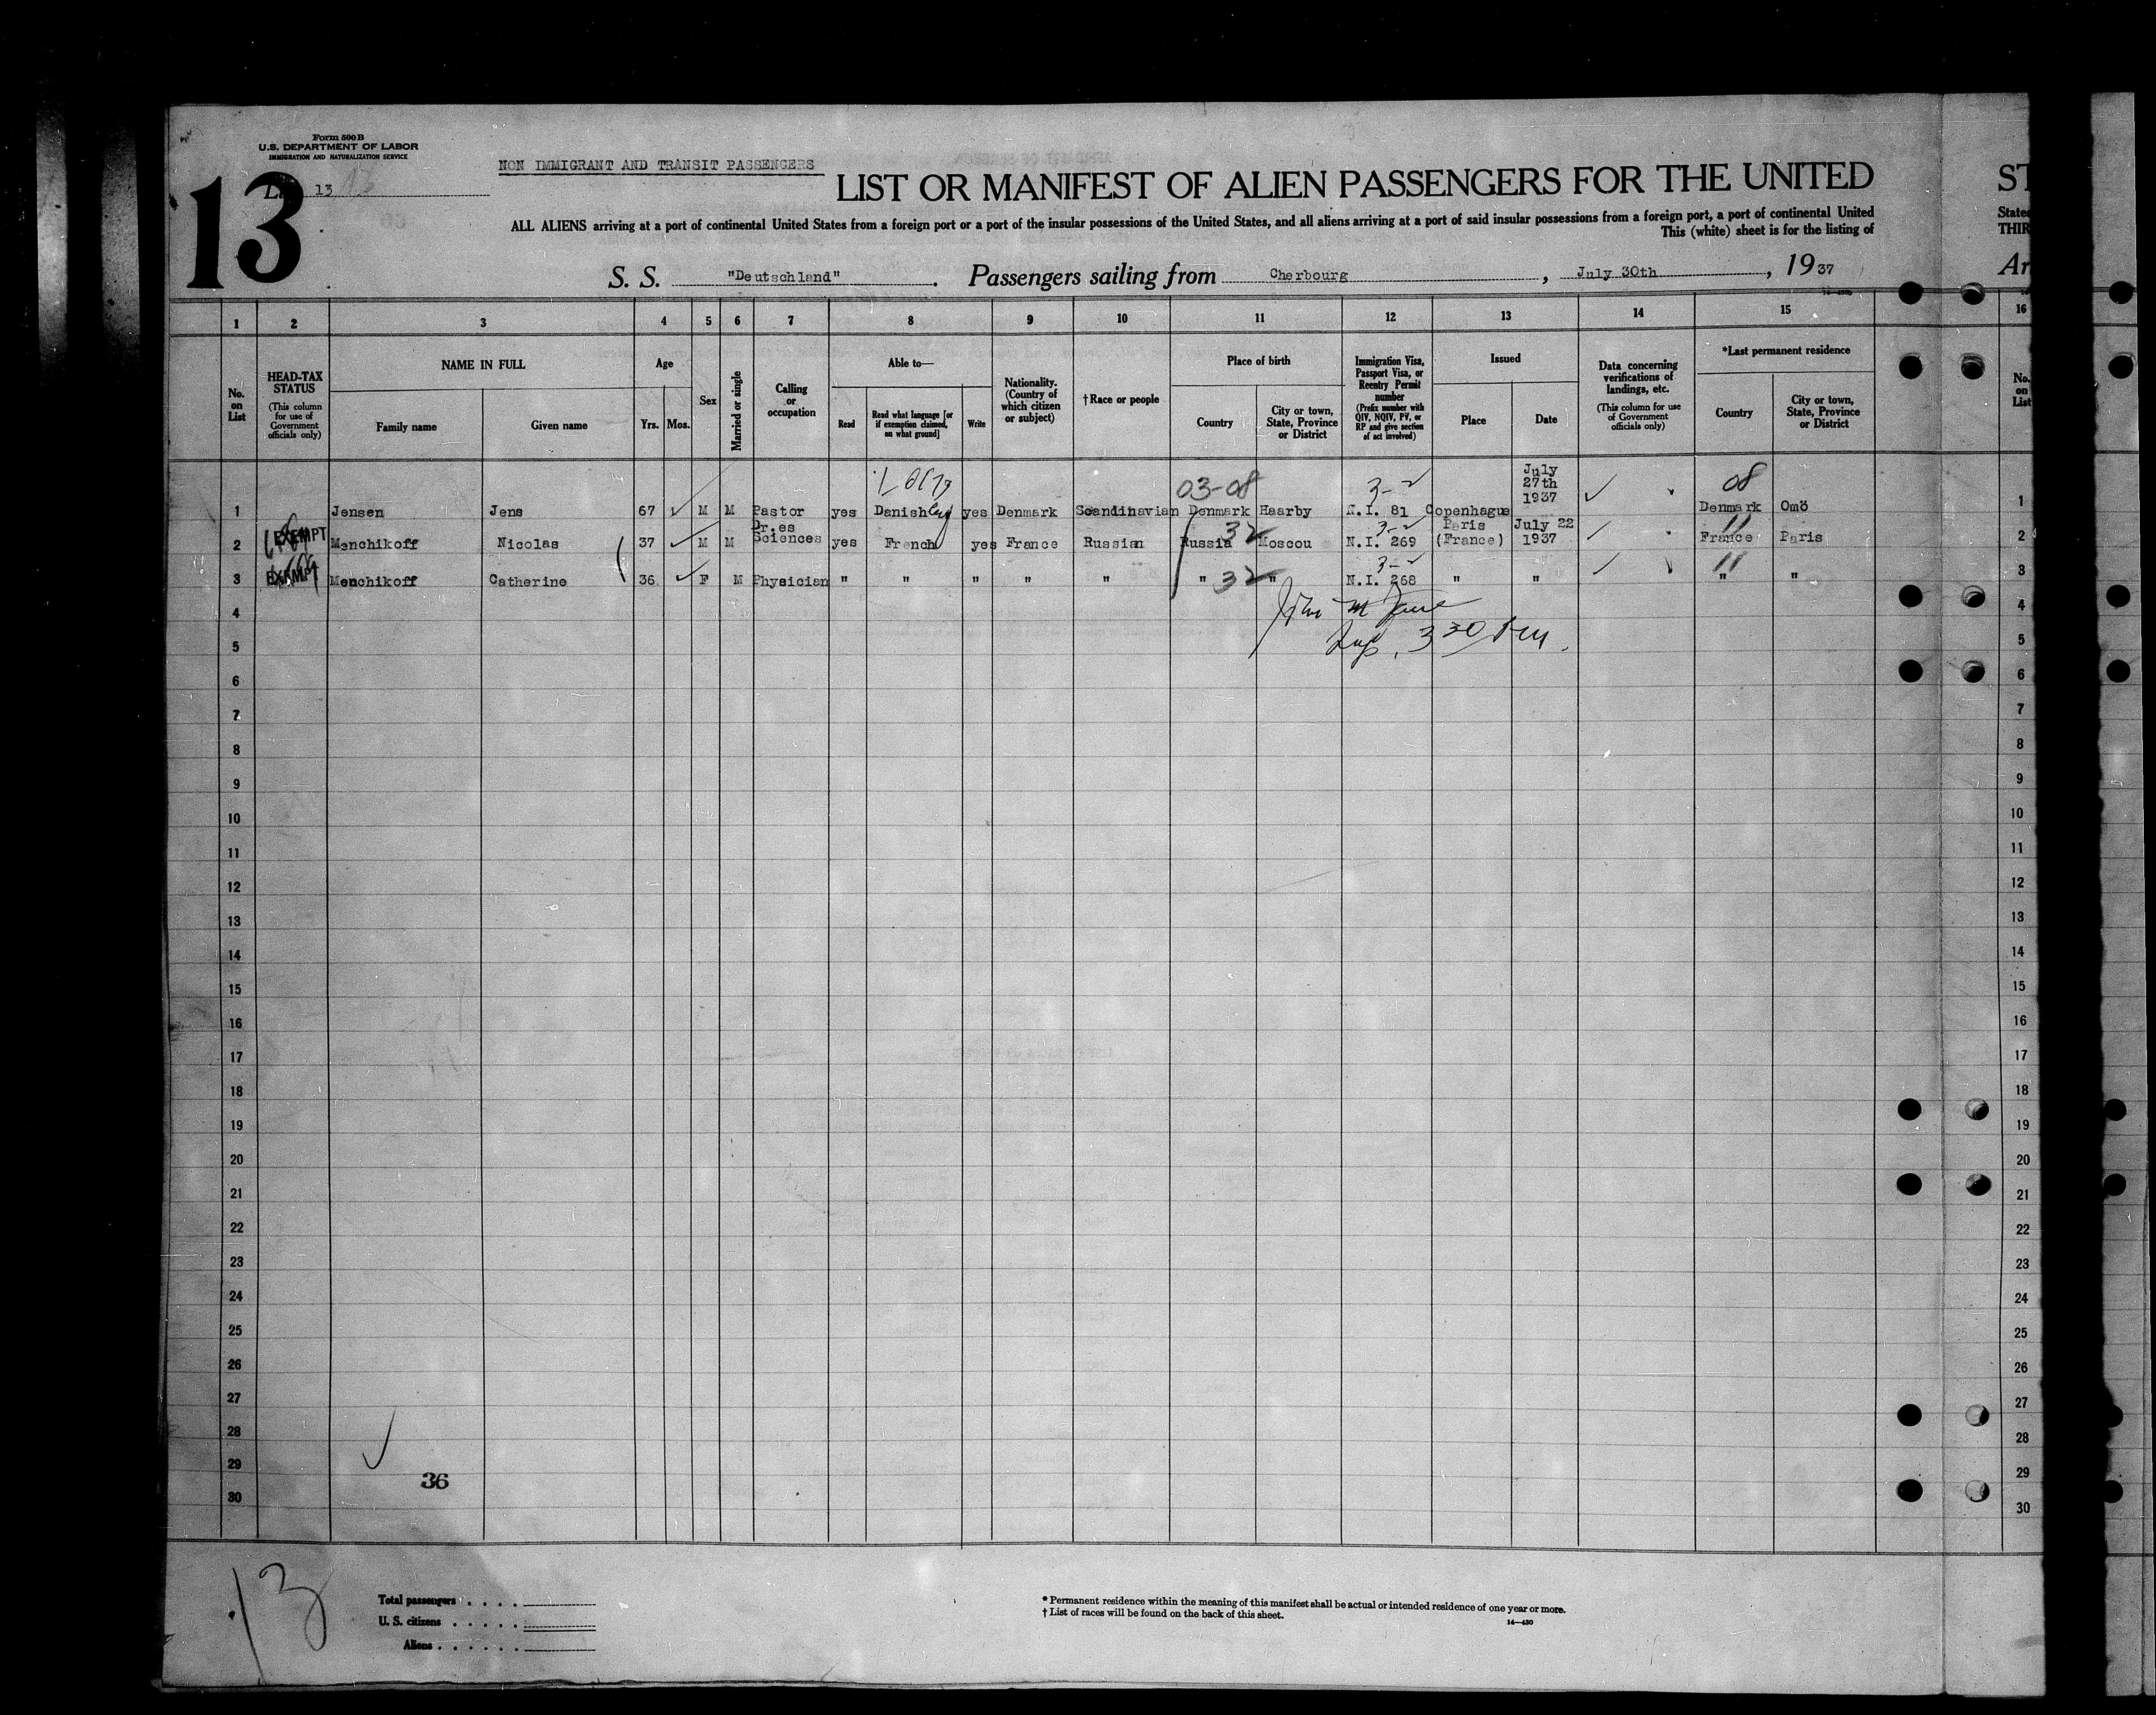 Form 500 B
U.S. DEPARTMENT OF LABOR
IMMIGRATION AND NATURALIZATION SERVICE
13
13
NON IMMIGRANT AND TRANSIT PASSENGERS
LIST OR MANIFEST OF ALIEN PASSENGERS FOR THE UNITED
ST
ALL ALIENS arriving at a port of continental United States from a foreign port or a port of the insular possessions of the United States, and all aliens arriving at a port of said insular possessions from a foreign port, a port of continental United
State
This (white) sheet is for the listing of
THIR
S. S. "Deutschland". Passengers sailing from Cherbourg, July 30th, 1937
Ar
1 2 3 4 5 6 7 8 9 10 11 12 13 14 15 16
No. on List
HEAD-TAX STATUS
(This column for use of Government officials only)
NAME IN FULL
Family name
Given name
Age
Yrs. Mos.
Sex
Married or single
Calling or occupation
Able to—
Read
Read what language [or if exemption claimed, on what ground]
Write
Nationality. (Country of which citizen or subject)
†Race or people
Place of birth
Country
City or town, State, Province or District
Immigration Visa, Passport Visa, or Reentry Permit number
(Prefix number with QIV, NQIV, PV, or RP and give section of act involved)
Issued
Place
Date
Data concerning verifications of landings, etc.
(This column for use of Government officials only)
*Last permanent residence
Country
City or town, State, Province or District
No. on List
03-08 3-2 08
1 Jensen Jens 67 M M Pastor yes Danish yes Denmark Scandinavian Denmark Haarby N.I. 81 Copenhague July 27th 1937 Denmark Omö 1
32 3-2 11
2 EXEMPT Menchikoff Nicolas 37 M M Dr.es Sciences yes French yes France Russian Russia Moscou N.I. 269 Paris (France) July 22 1937 France Paris 2
32 3-2 11
3 EXEMPT Menchikoff Catherine 36 F M Physician " " " " " " " N.I. 268 " " " " 3
4 4
3 30 PM.
5 5
6 6
7 7
8 8
9 9
10 10
11 11
12 12
13 13
14 14
15 15
16 16
17 17
18 18
19 19
20 20
21 21
22 22
23 23
24 24
25 25
26 26
27 27
28 28
29 29
36
30 30
13
Total passengers . . . .
U. S. citizens . . . . .
Aliens . . . . . .
* Permanent residence within the meaning of this manifest shall be actual or intended residence of one year or more.
† List of races will be found on the back of this sheet.
14—430